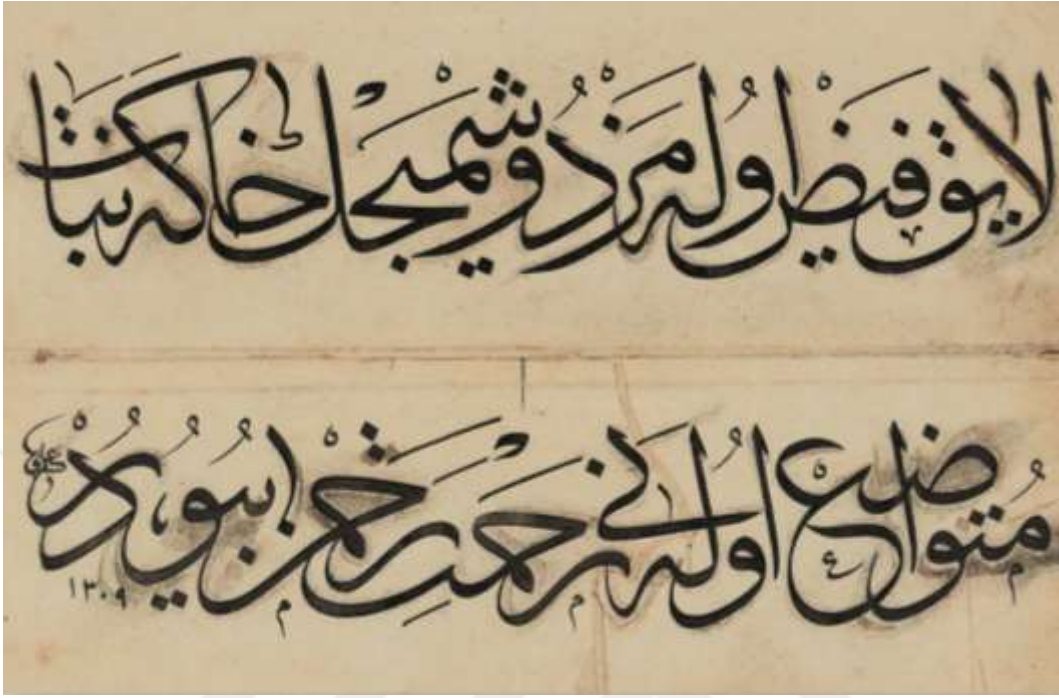 لايق فيض اوله مز دوشميجك خاكه نبات
متواضع اوله نى رحمت رحمن بيودر
١٣٠٩